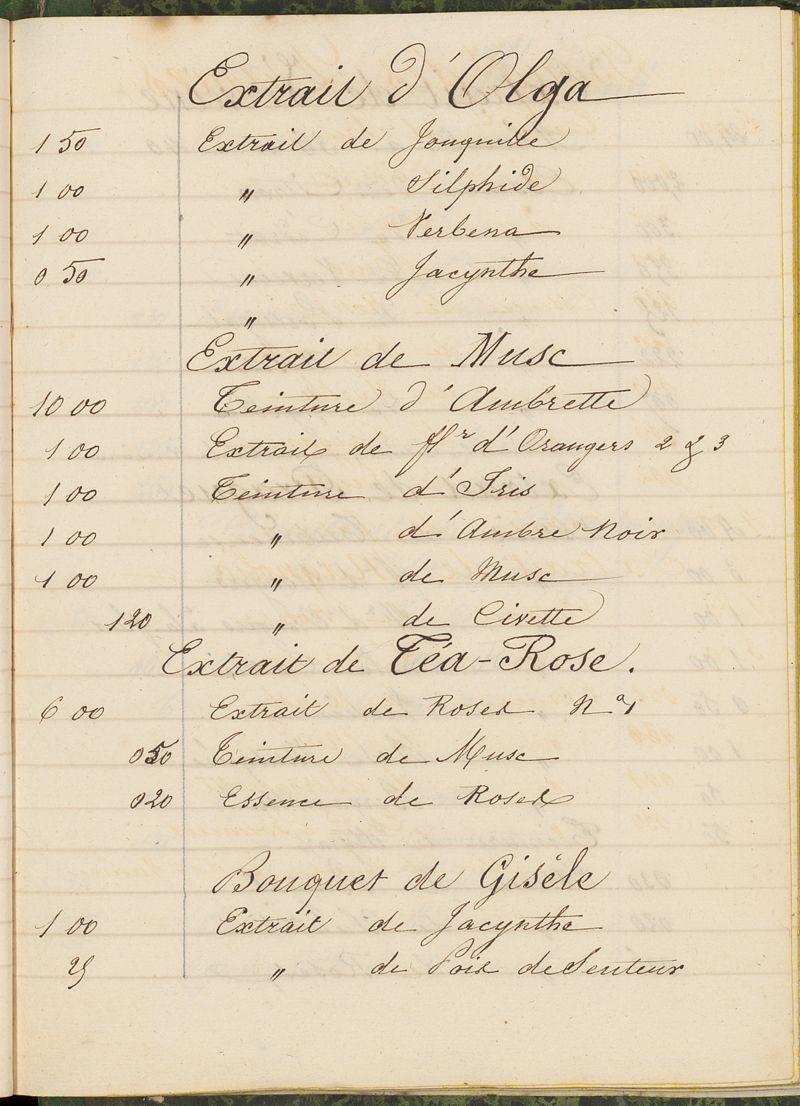 Extrait d'Olga
1 50 Extrait de Jonquille
1 00 " Silphide
1 00 " Verbena
0 50 " Jacynthe
"
Extrait de Musc
10 00 Teinture d'Ambrette
1 00 Extrait de flr d'Orangers 2 & 3
1 00 Teinture d'Iris
1 00 " d'Ambre Noir
1 00 " de Musc
120 " de Civette
Extrait de Téa-Rose.
6 00 Extrait de Roses No 1
050 Teinture de Musc
020 Essence de Roses
Bouquet de Gisèle
1 00 Extrait de Jacynthe
25 " de Pois de Senteur